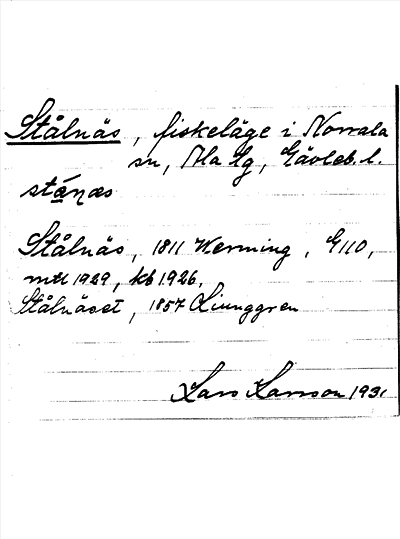 Stålnäs, fiskeläge i Norrala
sn, Ala hg, Gävleb. l.
stánæs
Stålnäs, 1811 Werming, G110,
mtl 1929, kb 1926.
Stålnäset, 1857 Ljunggren
Lars Larsson 1931